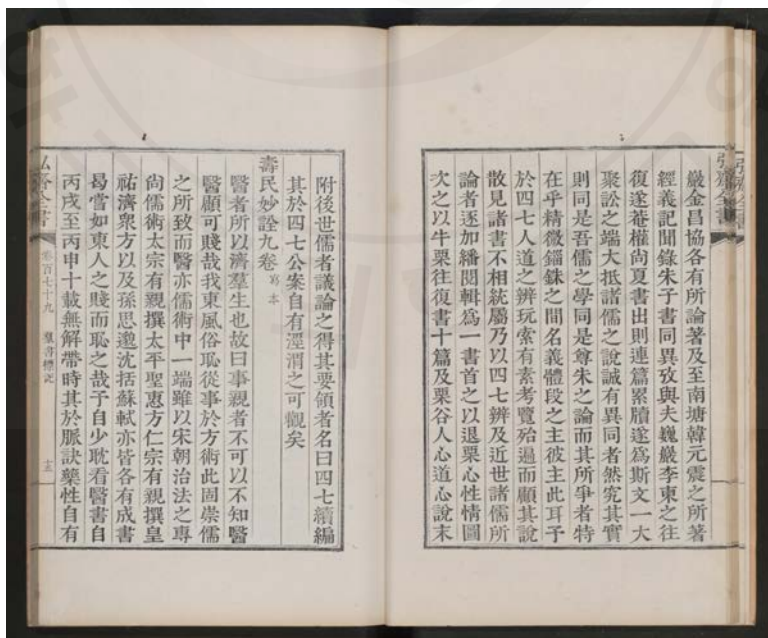 弘齋全書
嚴金昌協各有所論著及至南塘韓元震之所著
經義記聞錄朱子書同異攷與夫巍巖李柬之往
復遂菴權尙夏書出則連篇累牘遂爲斯文一大
聚訟之端大抵諸儒之說誠有異同者然究其實
則同是吾儒之學同是尊朱之論而其所爭者特
在乎精微錙銖之間名義體段之主彼主此耳予
於四七人道之辨玩索有素考覽殆遍而顧其說
散見諸書不相統屬乃以四七辨及近世諸儒所
論者逐加繙閱輯爲一書首之以退栗心性情圖
次之以牛栗往復書十篇及栗谷人心道心說末
附後世儒者議論之得其要領者名曰四七續編
其於四七公案自有涇渭之可觀矣
壽民妙詮九卷 寫本
醫者所以濟羣生也故曰事親者不可以不知醫
醫顧可賤哉我東風俗恥從事於方術此固崇儒
之所致而醫亦儒術中一端雖以宋朝治法之專
尙儒術太宗有親撰太平聖惠方仁宗有親撰皇
祐濟衆方以及孫思邈沈括蘇軾亦皆各有成書
曷嘗如東人之賤而恥之哉予自少耽看醫書自
丙戌至丙申十載無解帶時其於脈訣藥性自有
弘齋全書 卷百七十九 羣書標記 十五